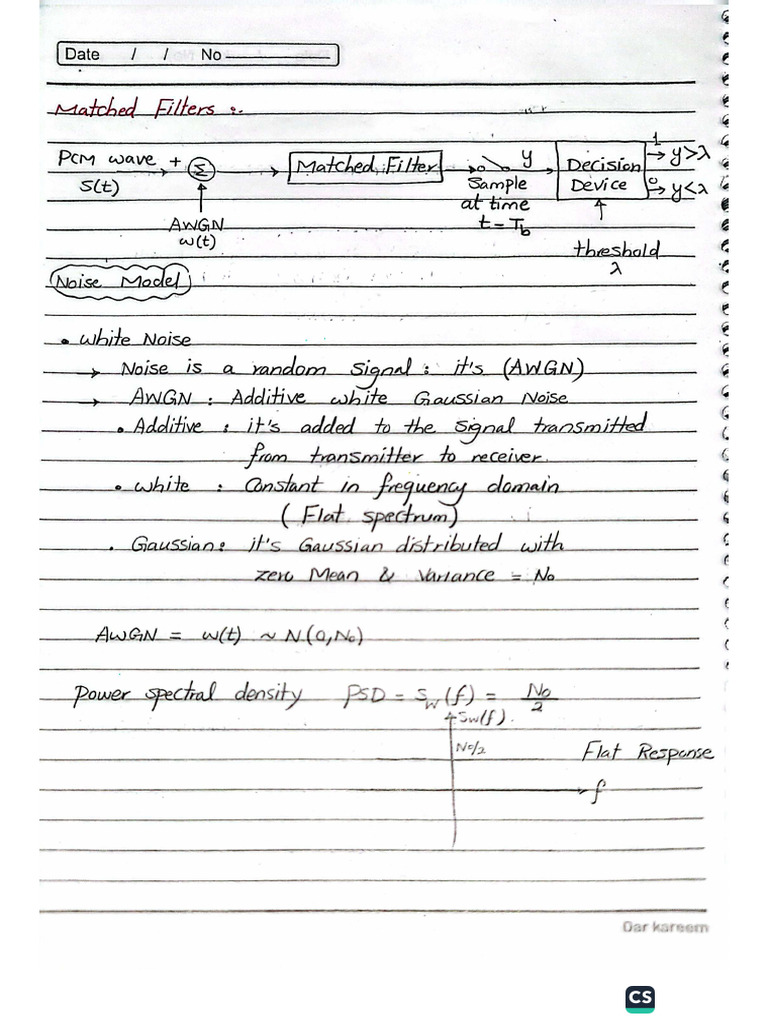 Date / / No
Matched Filters :.
PCM wave + Σ Matched Filter y Decision 1 → y>λ
S(t) Sample Device 0 → y<λ
AWGN at time
w(t) t = T_b threshold
λ
Noise Model
• White Noise
→ Noise is a random signal : it's (AWGN)
→ AWGN : Additive white Gaussian Noise
• Additive : it's added to the signal transmitted
from transmitter to receiver.
• white : Constant in frequency domain
( Flat spectrum)
• Gaussian : it's Gaussian distributed with
zero Mean & Variance = No
AWGN = w(t) ~ N(0, No)
Power spectral density PSD = S_w(f) = No/2
Sw(f).
No/2 Flat Response
f
Dar kareem
CS